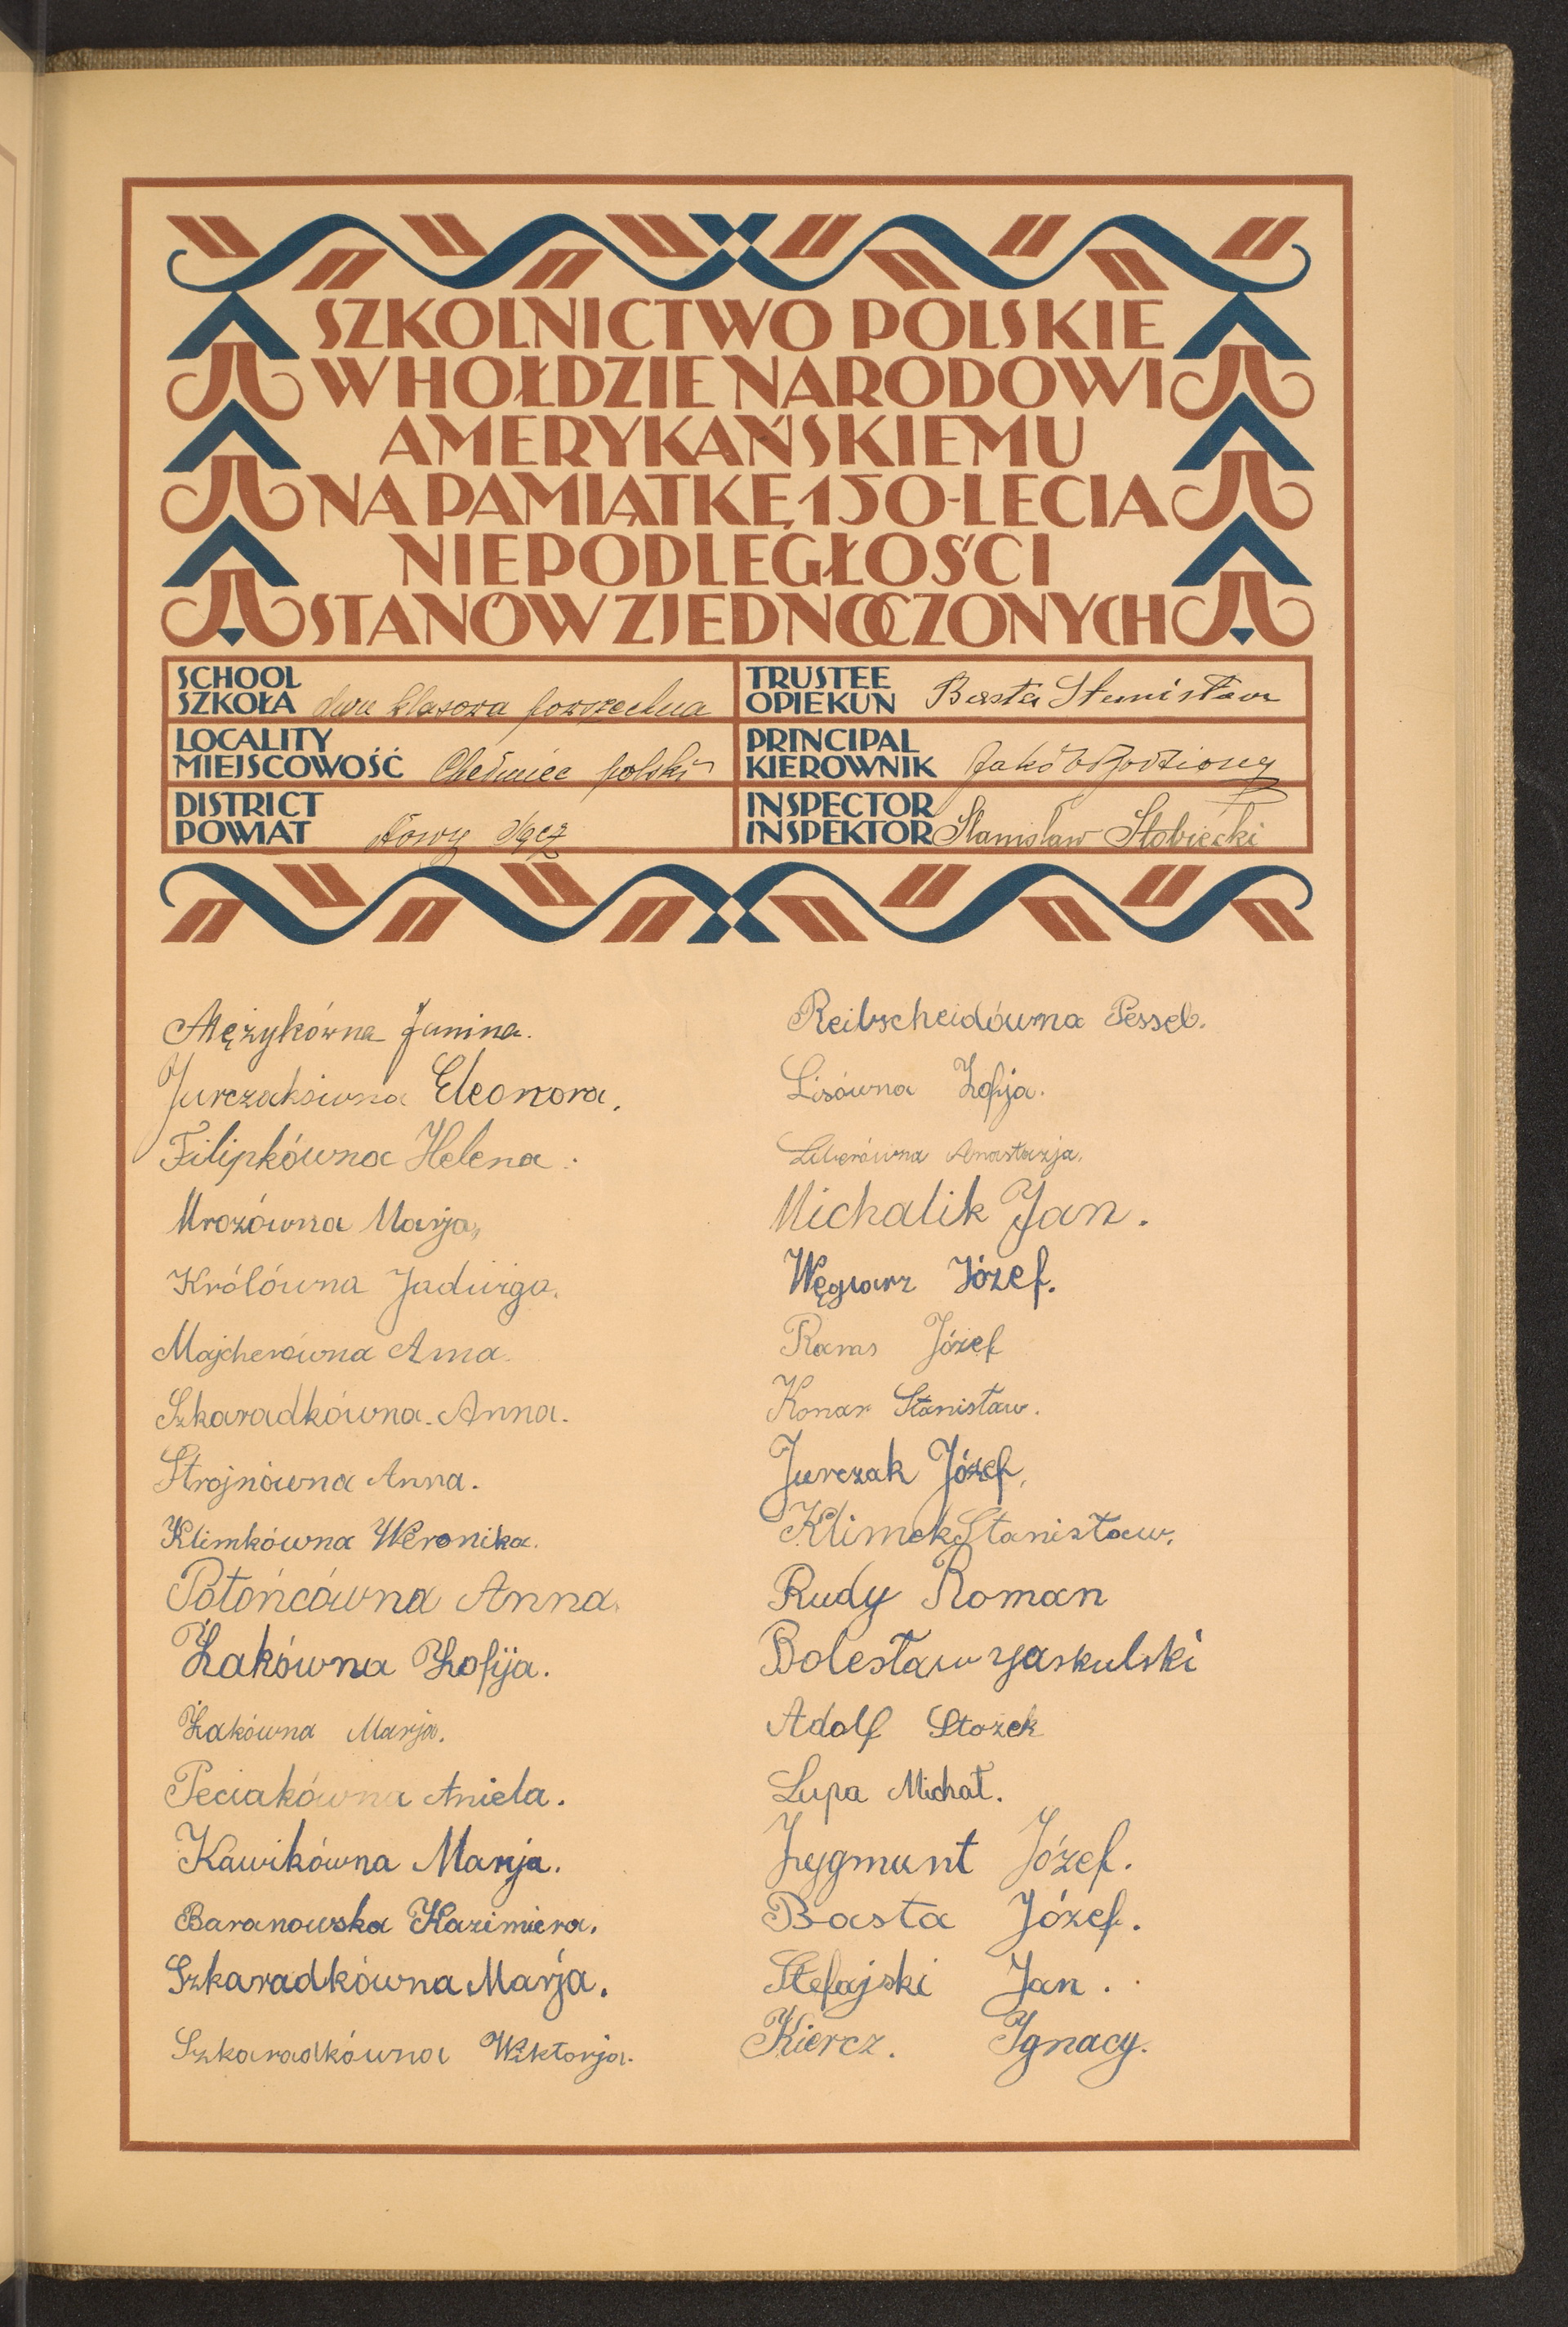 SZKOLNICTWO POLSKIE
W HOŁDZIE NARODOWI
AMERYKAŃSKIEMU
NA PAMIĄTKĘ 150-LECIA
NIEPODLEGŁOŚCI
STANÓW ZJEDNOCZONYCH
SCHOOL
SZKOŁA dwu klasowa powszechna
TRUSTEE
OPIEKUN Basta Stanisław
LOCALITY
MIEJSCOWOŚĆ Chełmiec polski
PRINCIPAL
KIEROWNIK Jakób
DISTRICT
POWIAT Nowy Sącz
INSPECTOR
INSPEKTOR Stanisław Słobiecki
Mężykówna Janina.
Jurczakówna Eleonora.
Filipkówna Helena.
Mrozówna Marja,
Królówna Jadwiga.
Majcherówna Anna.
Szkaradkówna. Anna.
Strojnówna Anna.
Klimkówna Weronika.
Potońcówna Anna.
Żakówna Zofija.
Żakówna Marja.
Peciakówna Aniela.
Kawikówna Marja.
Baranowska Kazimiera.
Szkaradkówna Marja.
Szkaradkówna Wiktorja.
Reibscheidówna Pessel.
Lisówna Zofja.
Liberówna Anastazja.
Michalik Jan.
Węgrarz Józef.
Rams Józef
Konar Stanisław.
Jurczak Józef.
Klimek Stanisław.
Rudy Roman
Bolesław Jaskulski
Adolf Stożek
Lupa Michał.
Zygmunt Józef.
Basta Józef.
Stefajski Jan.
Kiercz. Ignacy.